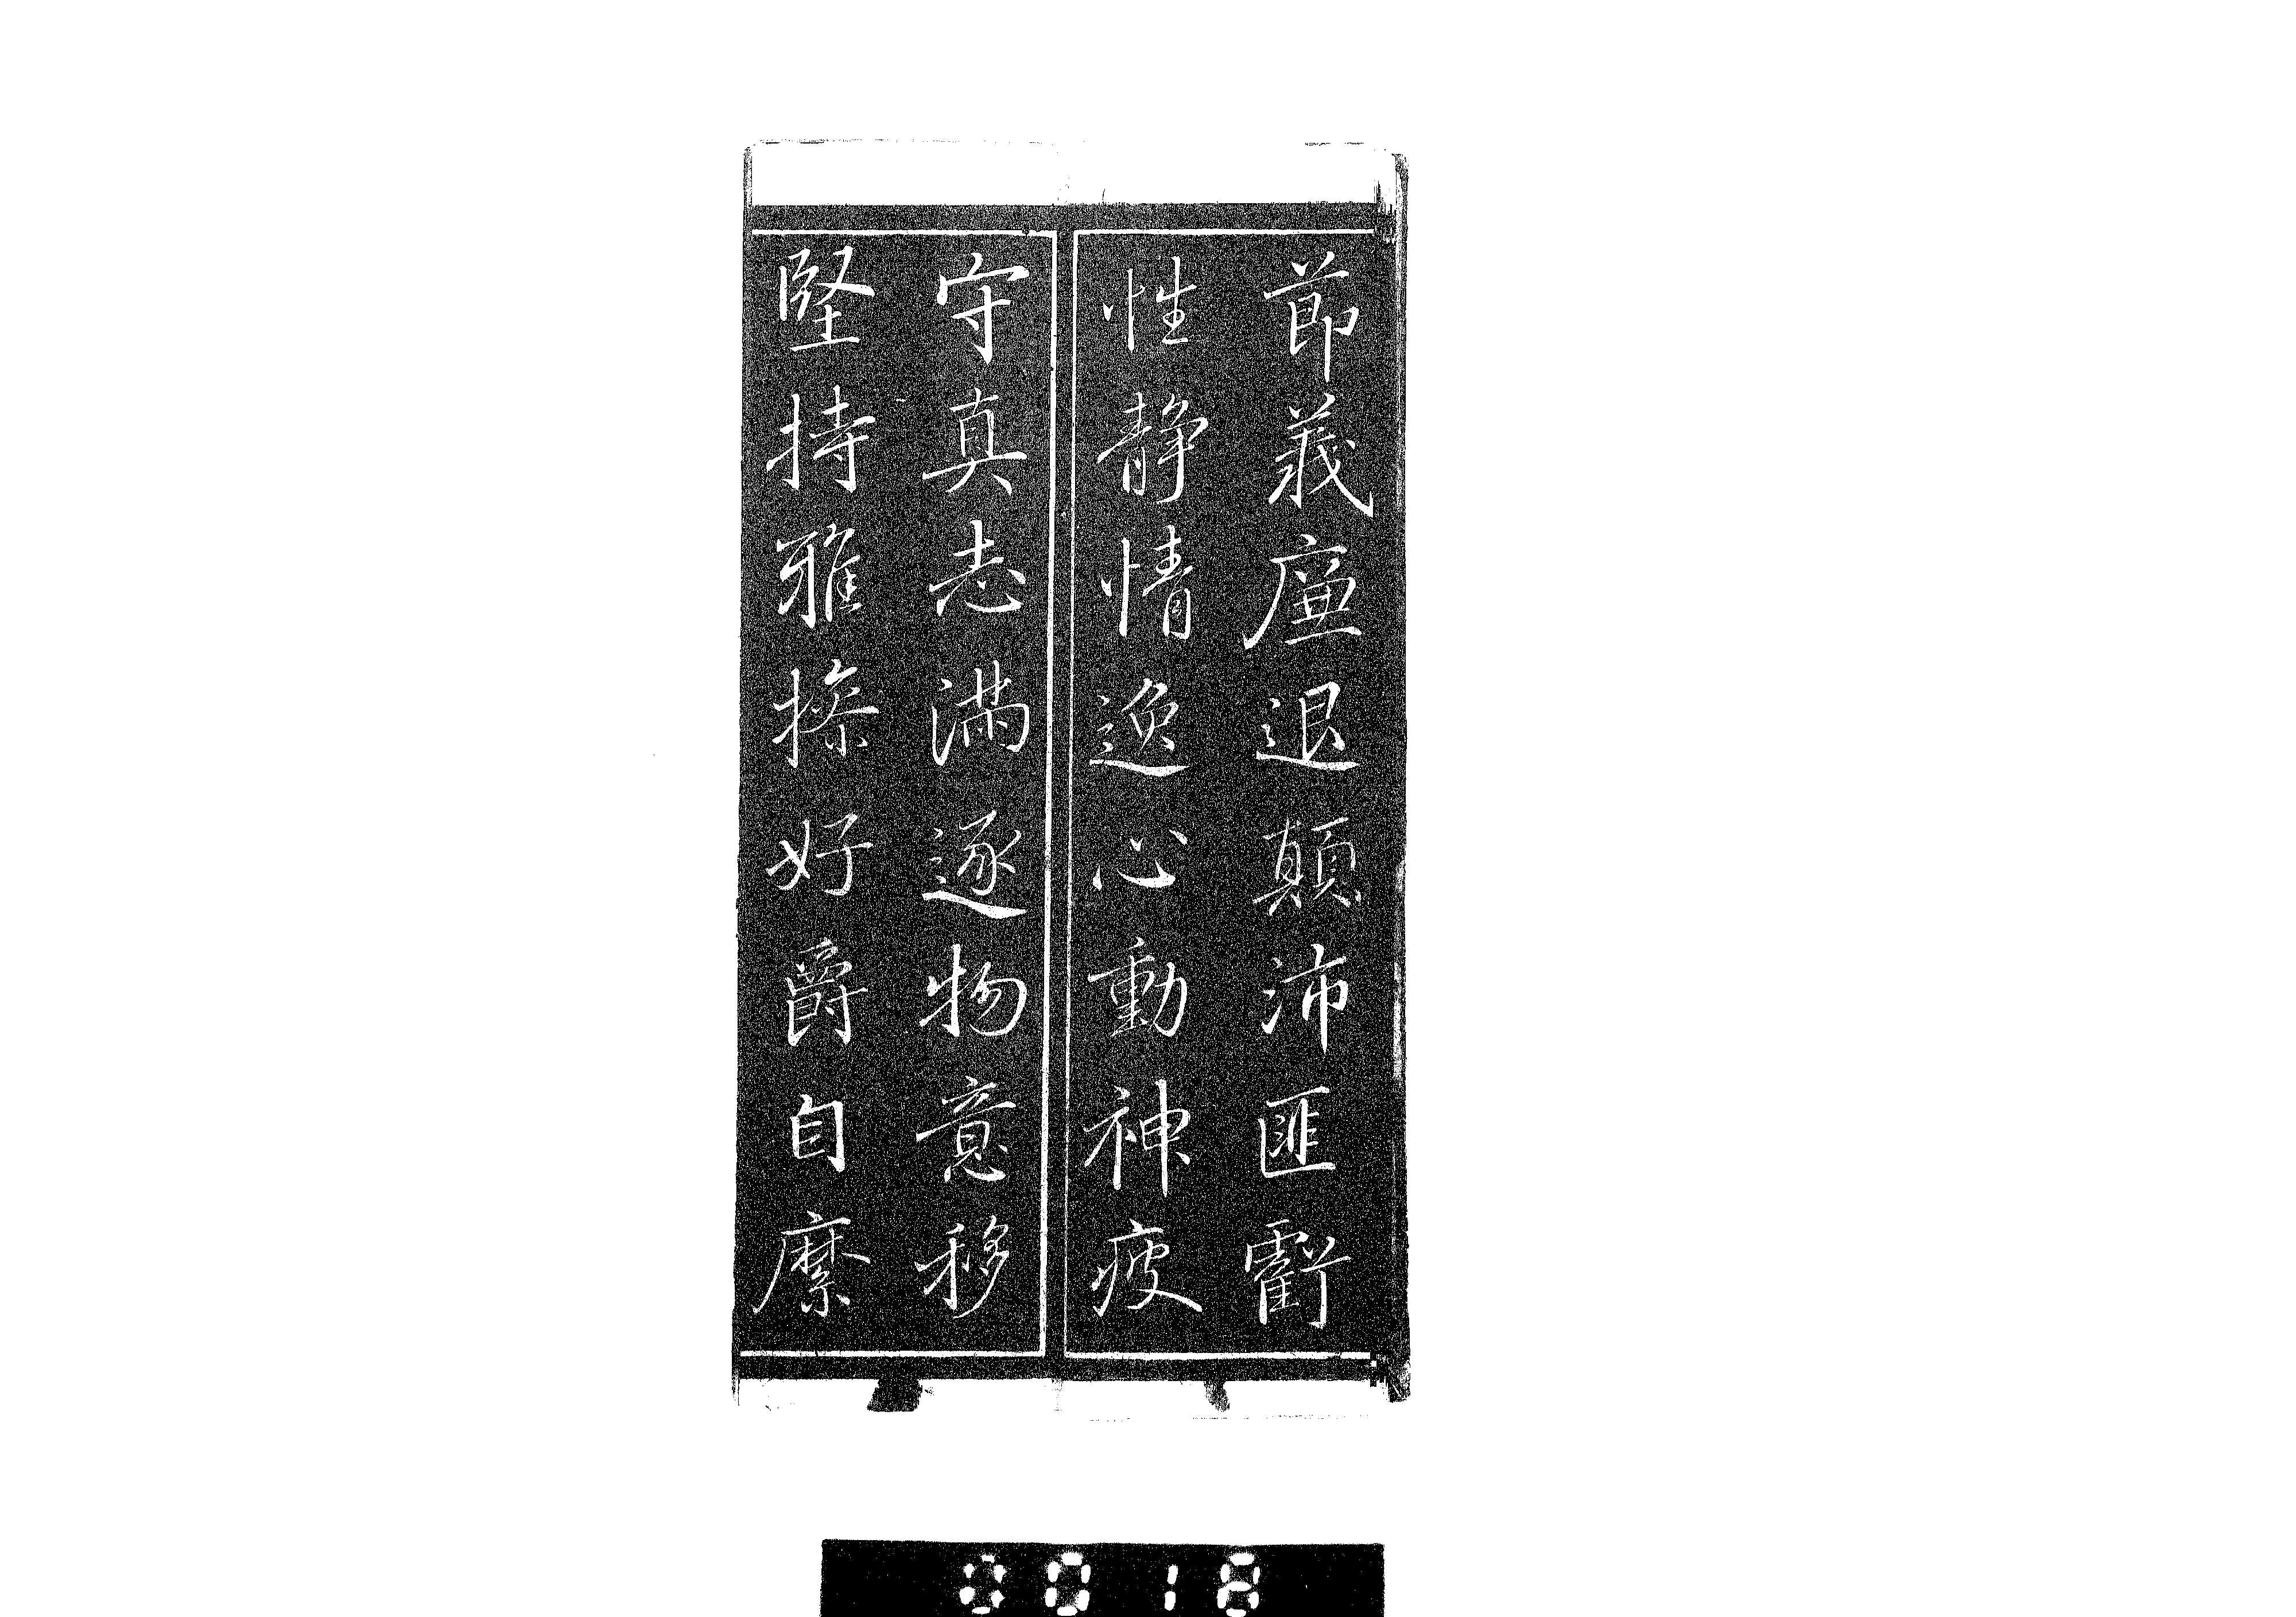 節義廉退顛沛匪虧
性静情逸心動神疲
守真志満逐物意移
堅持雅操好爵自縻
0018